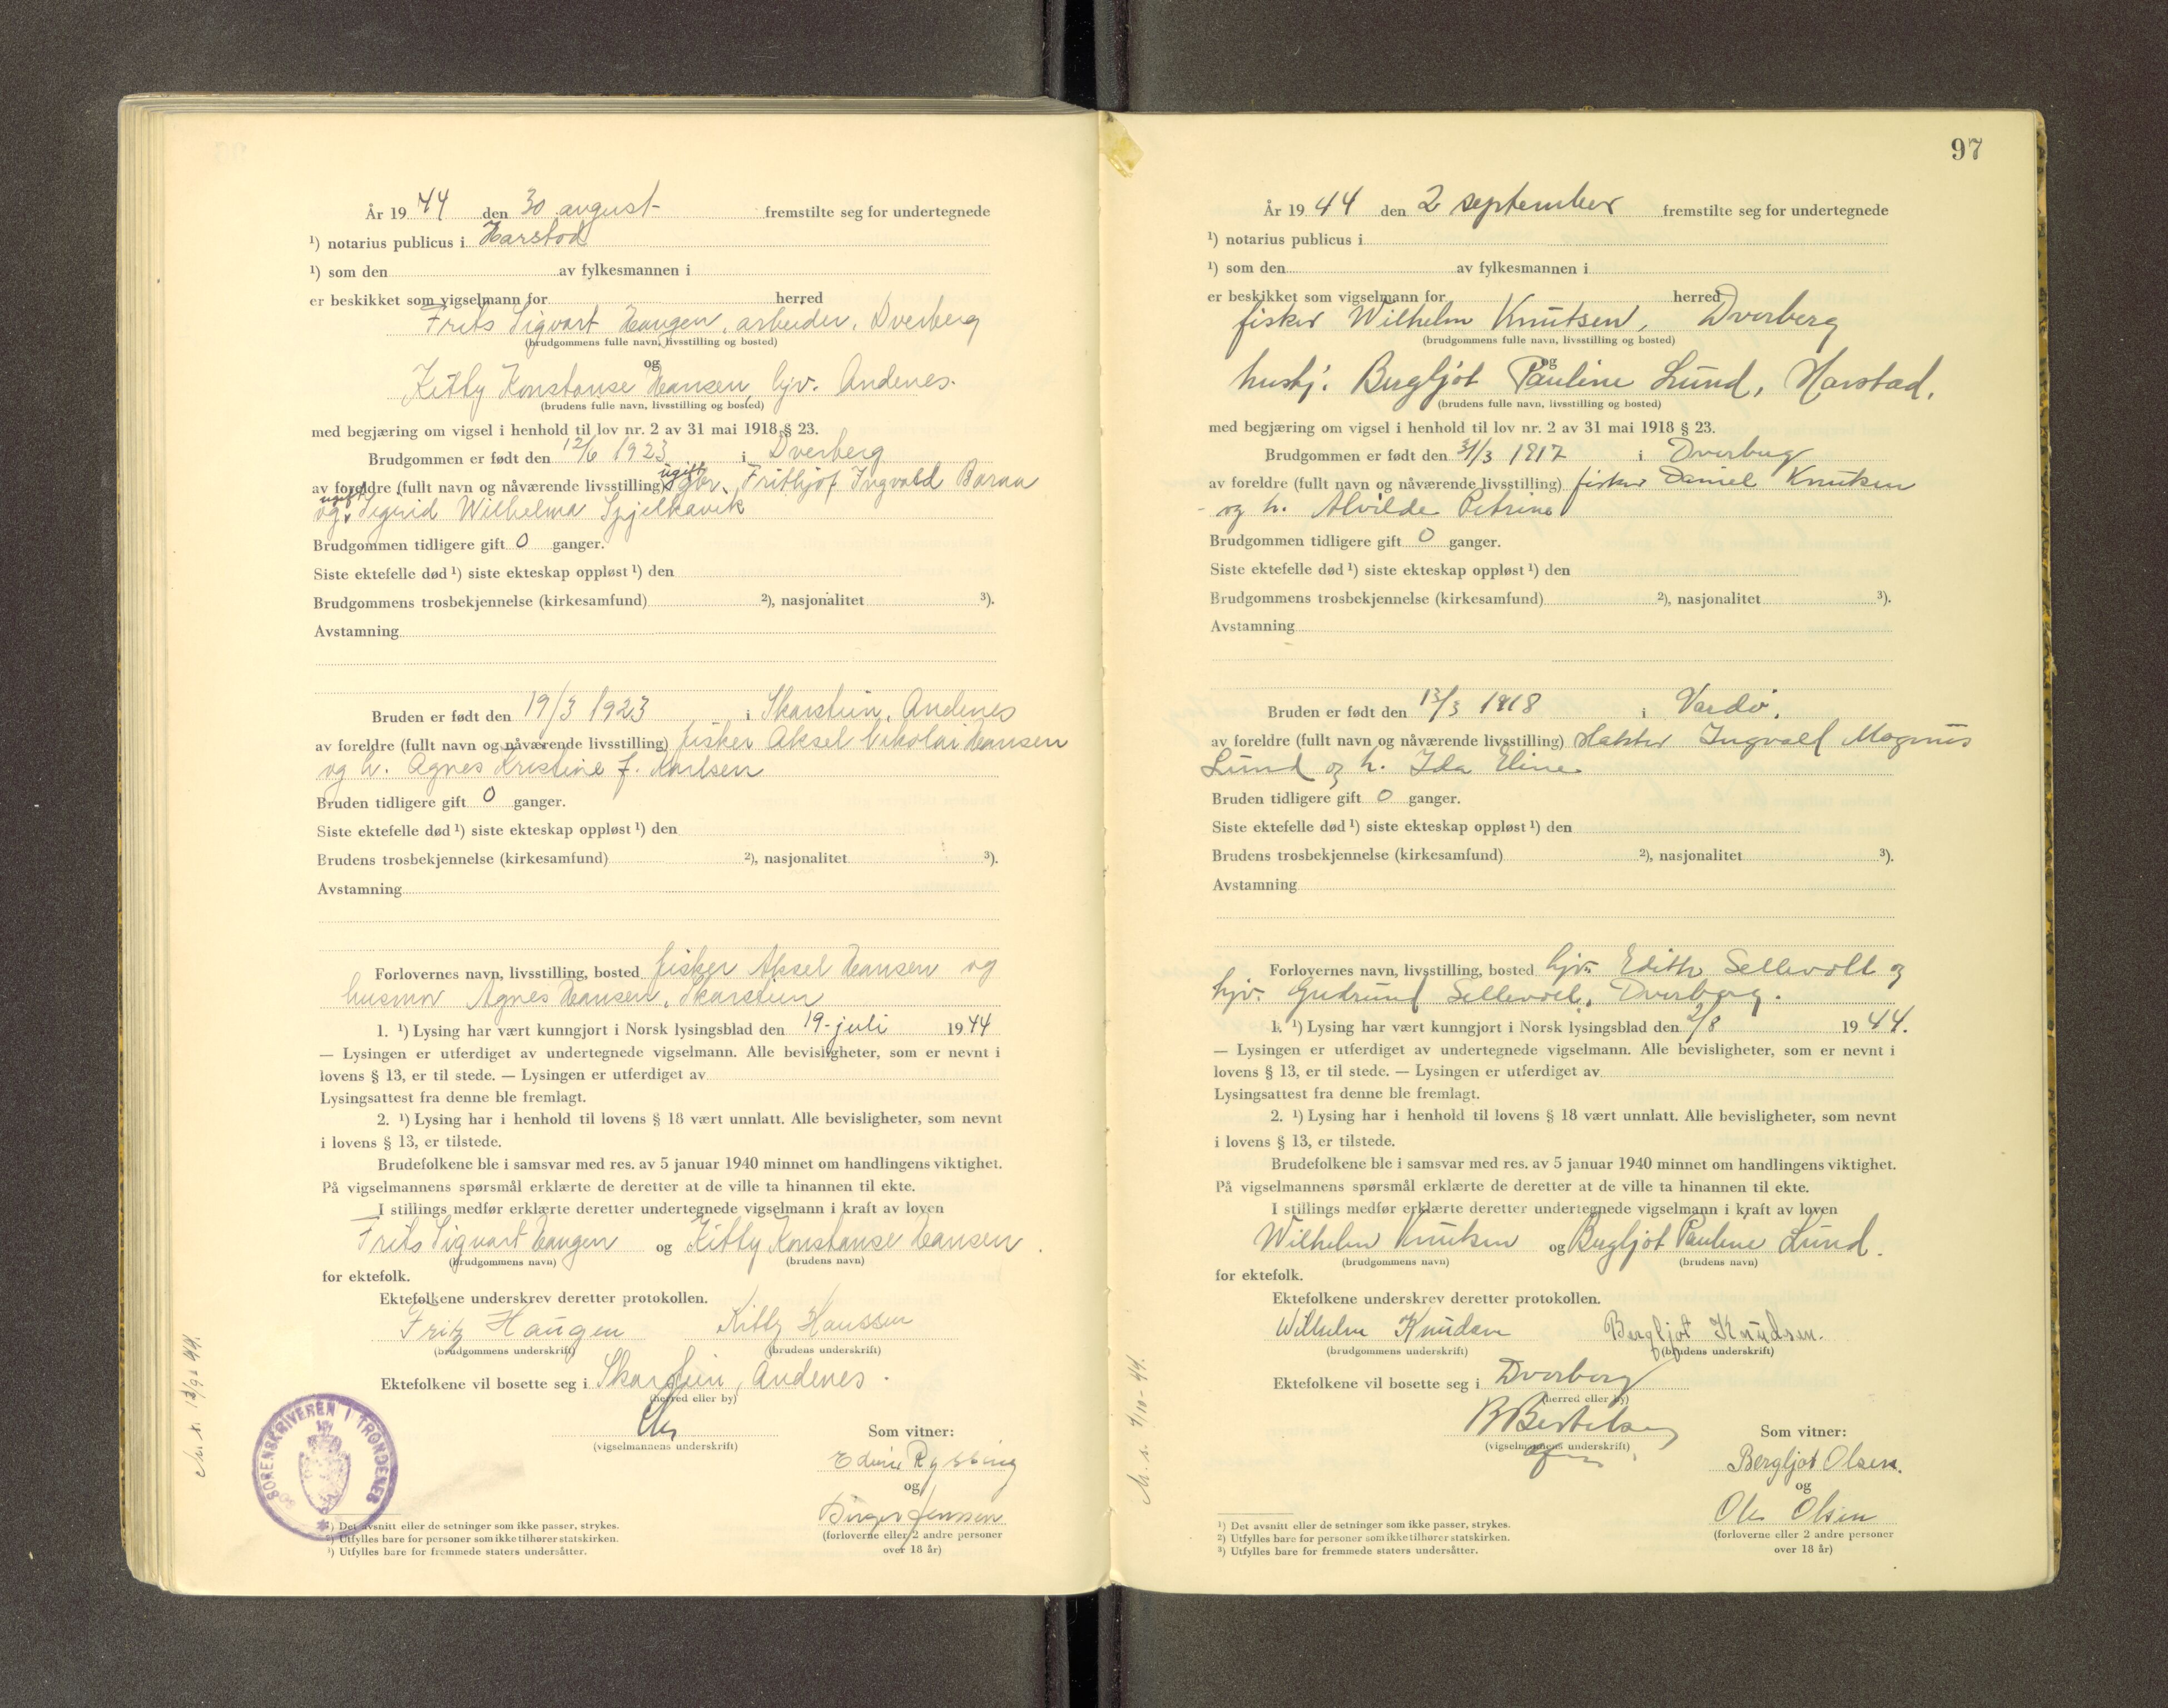 År 1944 den 30 august fremstilte seg for undertegnede
¹) notarius publicus i Harstad
¹) som den av fylkesmannen i
er beskikket som vigselmann for herred
Frits Sigvart Haugen, arbeider, Dverberg
(brudgommens fulle navn, livsstilling og bosted)
og
Kitty Konstanse Hansen, hjv. Andenes.
(brudens fulle navn, livsstilling og bosted)
med begjæring om vigsel i henhold til lov nr. 2 av 31 mai 1918 § 23.
Brudgommen er født den 12/6 1923 i Dverberg
ugift
av foreldre (fullt navn og nåværende livsstilling) Frithjof Ingvald
ugift
og Sigrid Wilhelma Spjelkavik
Brudgommen tidligere gift 0 ganger.
Siste ektefelle død ¹) siste ekteskap oppløst ¹) den
Brudgommens trosbekjennelse (kirkesamfund) ²), nasjonalitet ³).
Avstamning
Bruden er født den 19/3 1923 i Skarstein, Andenes
av foreldre (fullt navn og nåværende livsstilling) fisker Aksel Nikolai Hansen
og h. Agnes Kristine f. Karlsen
Bruden tidligere gift 0 ganger.
Siste ektefelle død ¹) siste ekteskap oppløst ¹) den
Brudens trosbekjennelse (kirkesamfund) ²), nasjonalitet ³).
Avstamning
Forlovernes navn, livsstilling, bosted fisker Aksel Hansen og
husmor Agnes Hansen, Skarstein
1. ¹) Lysing har vært kunngjort i Norsk lysingsblad den 19. juli 1944
— Lysingen er utferdiget av undertegnede vigselmann. Alle bevisligheter, som er nevnt i
lovens § 13, er til stede. — Lysingen er utferdiget av
Lysingsattest fra denne ble fremlagt.
2. ¹) Lysing har i henhold til lovens § 18 vært unnlatt. Alle bevisligheter, som nevnt
i lovens § 13, er tilstede.
Brudefolkene ble i samsvar med res. av 5 januar 1940 minnet om handlingens viktighet.
På vigselmannens spørsmål erklærte de deretter at de ville ta hinannen til ekte.
I stillings medfør erklærte deretter undertegnede vigselmann i kraft av loven
Frits Sigvart Haugen og Kitty Konstanse Hansen
(brudgommens navn) (brudens navn)
for ektefolk.
Ektefolkene underskrev deretter protokollen.
Fritz Haugen Kitty Hanssen
(brudgommens underskrift) (brudens underskrift)
Ektefolkene vil bosette seg i Skarstein, Andenes.
(herred eller by)
(vigselmannens underskrift)
Som vitner:
og
Birger Jenssen
(forloverne eller 2 andre personer
over 18 år)
SORENSKRIVEREN I TRONDENES
¹) Det avsnitt eller de setninger som ikke passer, strykes.
²) Utfylles bare for personer som ikke tilhører statskirken.
³) Utfylles bare for fremmede staters undersåtter.
97
År 1944 den 2 september fremstilte seg for undertegnede
¹) notarius publicus i
¹) som den av fylkesmannen i
er beskikket som vigselmann for herred
fisker Wilhelm Knutsen, Dverberg
(brudgommens fulle navn, livsstilling og bosted)
og
hushj. Bergljot Pauline Lund, Harstad.
(brudens fulle navn, livsstilling og bosted)
med begjæring om vigsel i henhold til lov nr. 2 av 31 mai 1918 § 23.
Brudgommen er født den 31/3 1917 i Dverberg
av foreldre (fullt navn og nåværende livsstilling) fisker Daniel Knutsen
og h. Alvilde Petrine
Brudgommen tidligere gift 0 ganger.
Siste ektefelle død ¹) siste ekteskap oppløst ¹) den
Brudgommens trosbekjennelse (kirkesamfund) ²), nasjonalitet ³).
Avstamning
Bruden er født den 13/3 1918 i Vardø.
av foreldre (fullt navn og nåværende livsstilling) slakter Ingvald Magnus
Lund og h. Ida Eline
Bruden tidligere gift 0 ganger.
Siste ektefelle død ¹) siste ekteskap oppløst ¹) den
Brudens trosbekjennelse (kirkesamfund) ²), nasjonalitet ³).
Avstamning
Forlovernes navn, livsstilling, bosted hjv. Edith Sellevoll og
hjv. Gudrund Sellevoll, Dverberg.
1. ¹) Lysing har vært kunngjort i Norsk lysingsblad den 2/8 1944.
— Lysingen er utferdiget av undertegnede vigselmann. Alle bevisligheter, som er nevnt i
lovens § 13, er til stede. — Lysingen er utferdiget av
Lysingsattest fra denne ble fremlagt.
2. ¹) Lysing har i henhold til lovens § 18 vært unnlatt. Alle bevisligheter, som nevnt
i lovens § 13, er tilstede.
Brudefolkene ble i samsvar med res. av 5 januar 1940 minnet om handlingens viktighet.
På vigselmannens spørsmål erklærte de deretter at de ville ta hinannen til ekte.
I stillings medfør erklærte deretter undertegnede vigselmann i kraft av loven
Wilhelm Knutsen og Bergljot Pauline Lund.
(brudgommens navn) (brudens navn)
for ektefolk.
Ektefolkene underskrev deretter protokollen.
Wilhelm Knudsen Bergljot Knudsen.
(brudgommens underskrift) (brudens underskrift)
Ektefolkene vil bosette seg i Dverberg
(herred eller by)
B Bertelsen
(vigselmannens underskrift)
Som vitner:
Bergljot Olsen.
og
Ole Olsen
(forloverne eller 2 andre personer
over 18 år)
¹) Det avsnitt eller de setninger som ikke passer, strykes.
²) Utfylles bare for personer som ikke tilhører statskirken.
³) Utfylles bare for fremmede staters undersåtter.